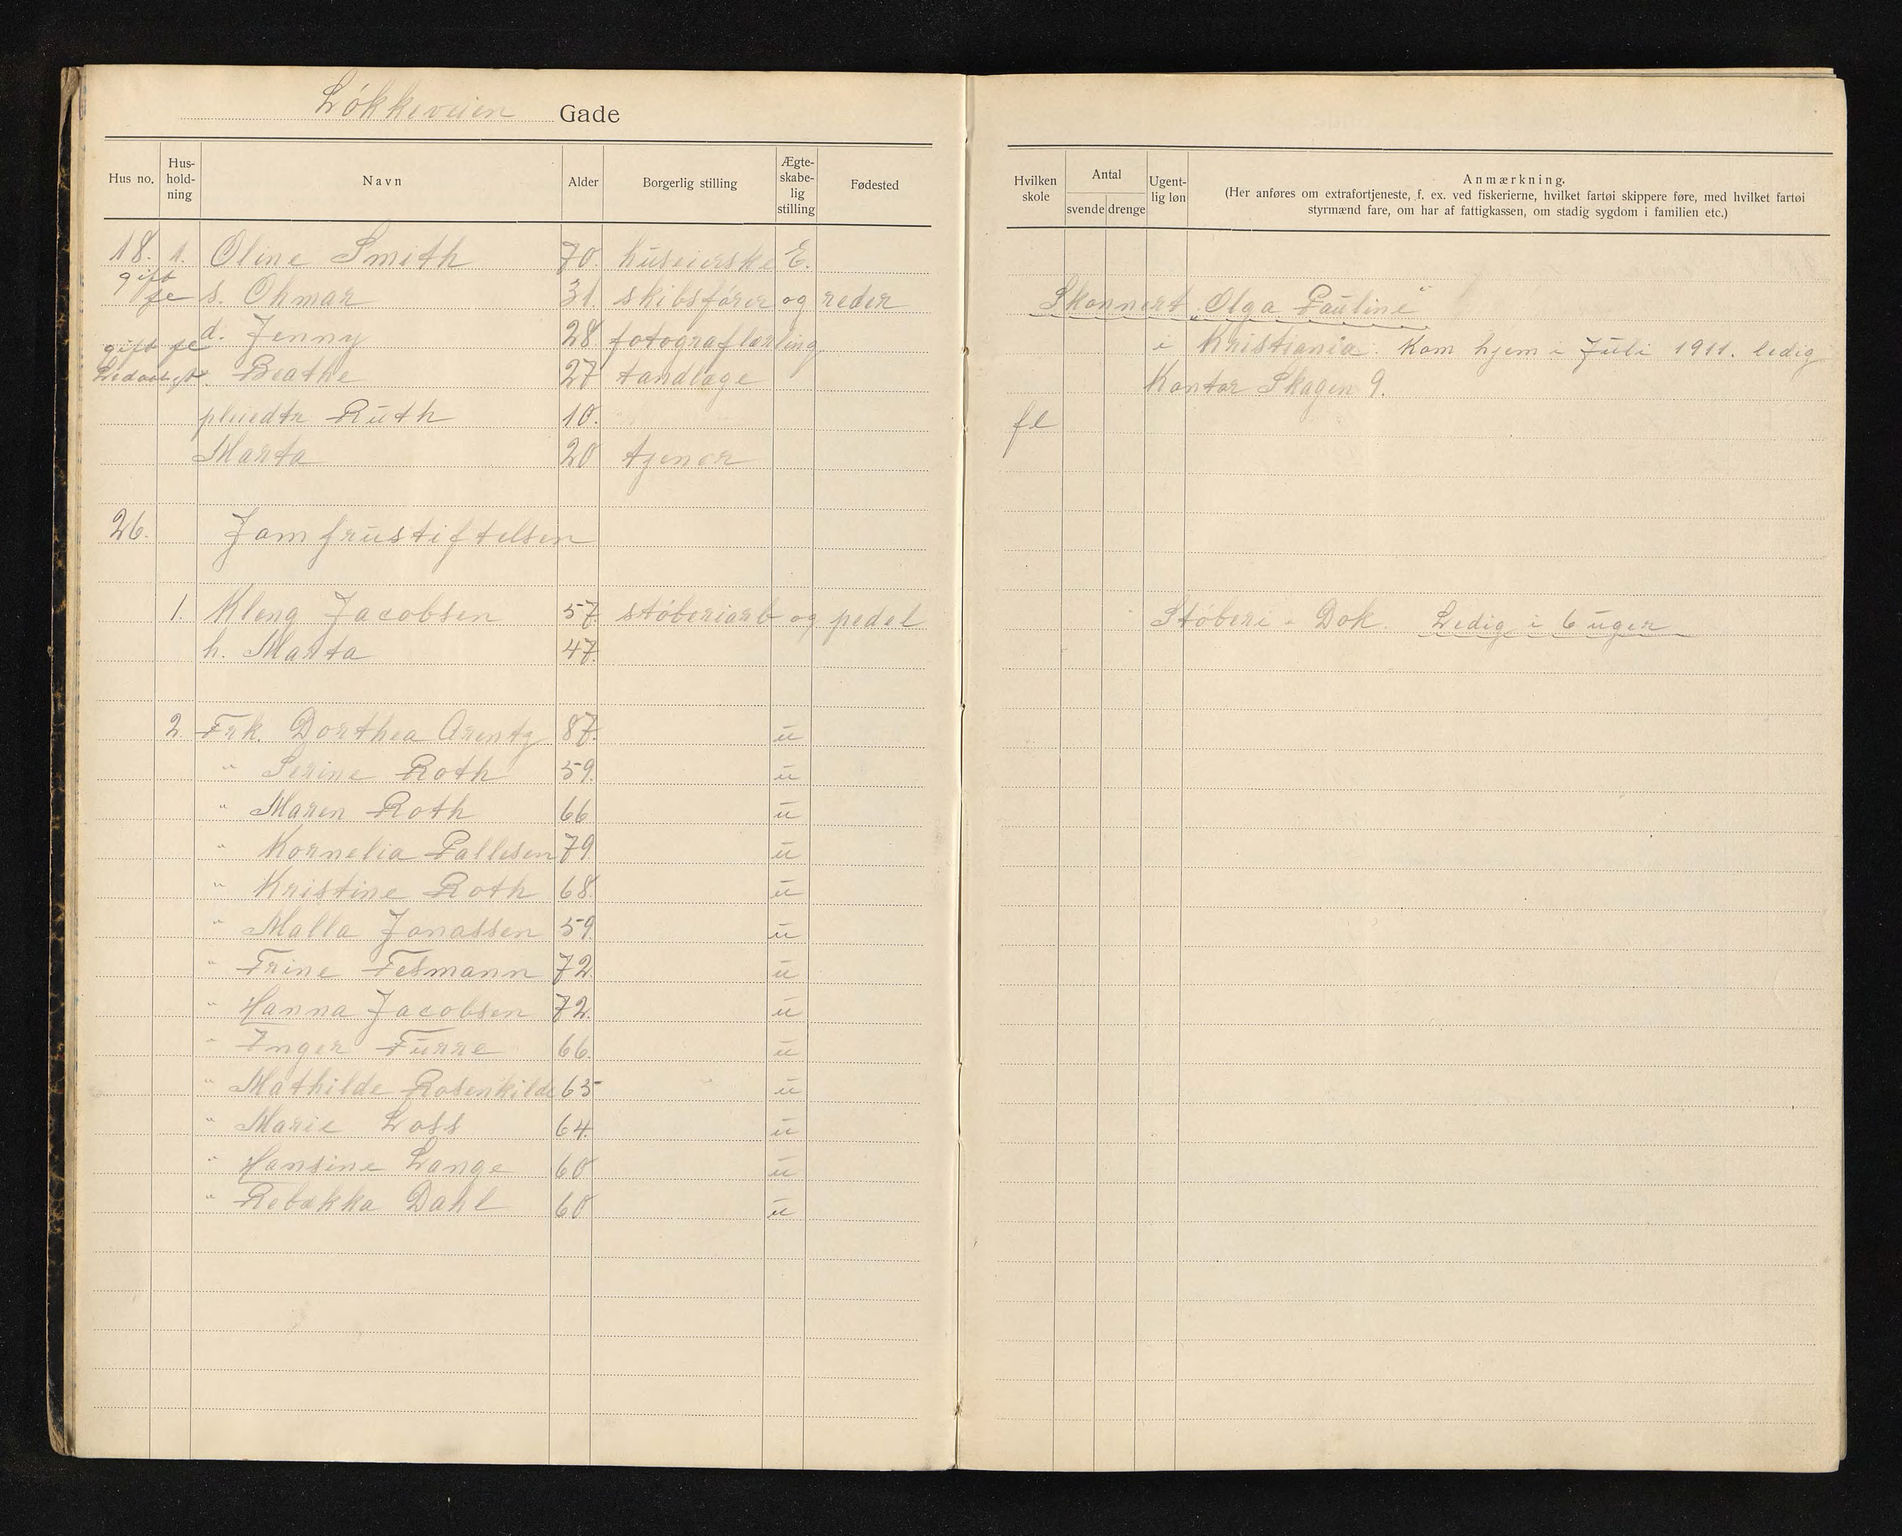 Løkkeveien Gade
Hus no. Hus-hold-ning Navn Alder Borgerlig stilling Ægte-skabe-lig stilling Fødested
18. 1. Oline Smith 70. huseierske E.
gift fe s. Ohmar 31. skibsfører og reder
gift fe d. Jenny 28 fotograflærling
Beathe 27 tandlæge
pleiedtr Ruth 10.
Marta 20 tjener
26. Jomfrustiftelsen
1. Kleng Jacobsen 57. støberiarb og pedel
h. Marta 47.
2 Frk. Dorthea Arentz 87. u
" Serine Roth 59. u
" Maren Roth 66 u
" Kornelia Pallesen 79 u
" Kristine Roth 68. u
" Malla Jonassen 59 u
" Trine Tesmann 72. u
" Hanna Jacobsen 72. u
" Inger Furre 66. u
" Mathilde Rosenkilde 65 u
" Marie Loss 64. u
" Hansine Lange 60 u
" Rebækka Dahl 60 u
Hvilken skole Antal svende drenge Ugent-lig løn Anmærkning.
(Her anføres om extrafortjeneste, f. ex. ved fiskerierne, hvilket fartøi skippere føre, med hvilket fartøi
styrmænd fare, om har af fattigkassen, om stadig sygdom i familien etc.)
Skonnert „Olga Pauline"
i Kristiania. Kom hjem i Juli 1911. ledig
Kontor Skagen 9.
fl
Støberi - Dok. Ledig i 6 uger